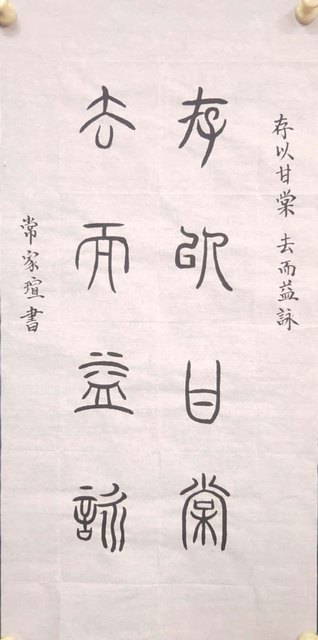 存以甘棠 去而益詠
存以甘棠
去而益詠
常家瑄書